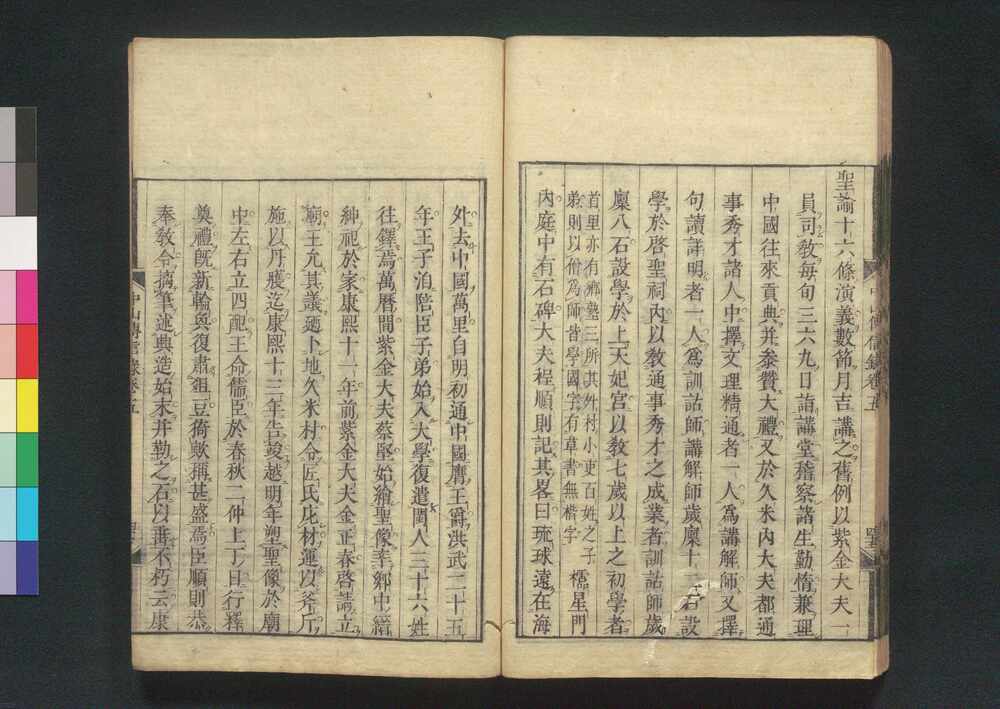 聖諭十六條演義數節月吉講之舊例以紫金大夫一
員司教每旬三六九日詣講堂稽察諸生勤惰兼理
中國往來貢典并叅贊大禮又於久米內大夫都通
事秀才諸人中擇文理精通者一人爲講解師又擇
句讀詳明者一人爲訓詁師講解師歲廩十二石設
學於啓聖祠內以教通事秀才之成業者訓詁師歲
廩八石設學於上天妃宮以教七歲以上之初學者
首里亦有鄉塾三所其外村小吏百姓之子
弟則以僧爲師皆學國字有草書無楷字
櫺星門
內庭中有石碑大夫程順則記其畧曰琉球遠在海
外去中國萬里自明初通中國膺王爵洪武二十五
年王子泊陪臣子弟始入大學復遣閩人三十六姓
往鐸焉萬曆間紫金大夫蔡堅始繪聖像率鄉中縉
紳祀於家康熙十一年前紫金大夫金正春啓請立
廟王允其議廼卜地久米村令匠氏庀材運以斧斤
施以丹雘迄康熙十三年告竣越明年塑聖像於廟
中左右立四配王命儒臣於春秋二仲上丁日行釋
奠禮旣新輪奐復肅俎豆猗歟稱甚盛焉臣順則恭
奉教令摛筆述典造始末并勒之石以垂不朽云康
中山傳信錄卷五